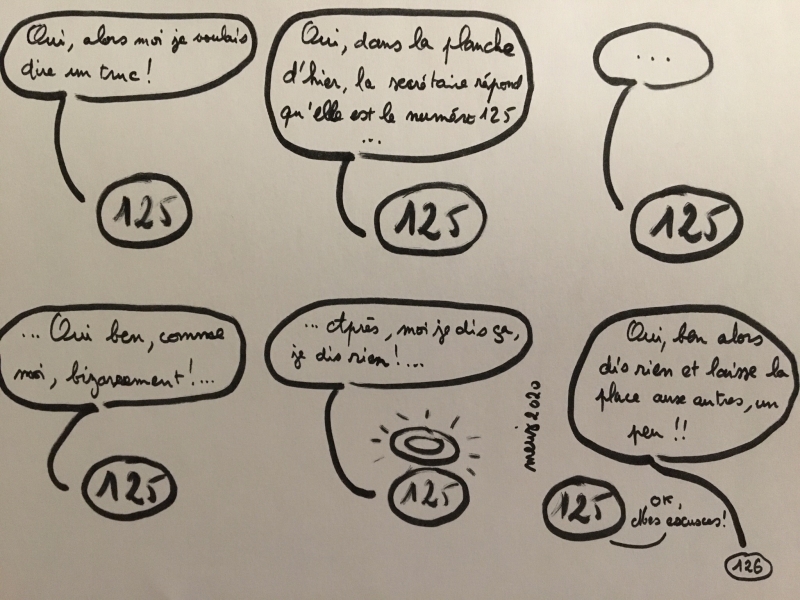 Oui, alors moi je voulais
dire un truc !
125
Oui, dans la planche
d'hier, la secrétaire répond
qu'elle est le numéro 125
...
125
...
125
... Oui ben, comme
moi, bizarrement !...
125
... Après, moi je dis ça,
je dis rien !...
125
meiz 2020
Oui, ben alors
dis rien et laisse la
place aux autres, un
peu !!
125
OK,
Mes excuses !
126